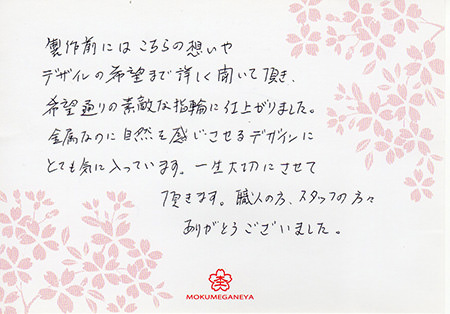 製作前にはこちらの想いや
デザインの希望まで詳しく聞いて頂き、
希望通りの素敵な指輪に仕上がりました。
金属なのに自然を感じさせるデザインに
とても気に入っています。一生大切にさせて
頂きます。職人の方、スタッフの方々
ありがとうございました。
杢
MOKUMEGANEYA